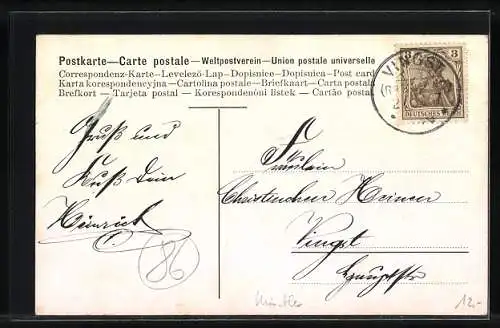 Postkarte—Carte postale—Weltpostverein—Union postale universelle
Correspondenz-Karte—Levelező-Lap—Dopisnice—Dopisnica—Post card
Karta korespondencyjna—Cartolina postale—Briefkaart—Carta postala
Brefkort—Tarjeta postal—Korespondenční listek—Cartão postal
3
VINGST
DEUTSCHES REICH
Gruß und
Kuß Dein
Heinrich
86
Fräulein
Vingst
Hauptstr
Künstler
12.-